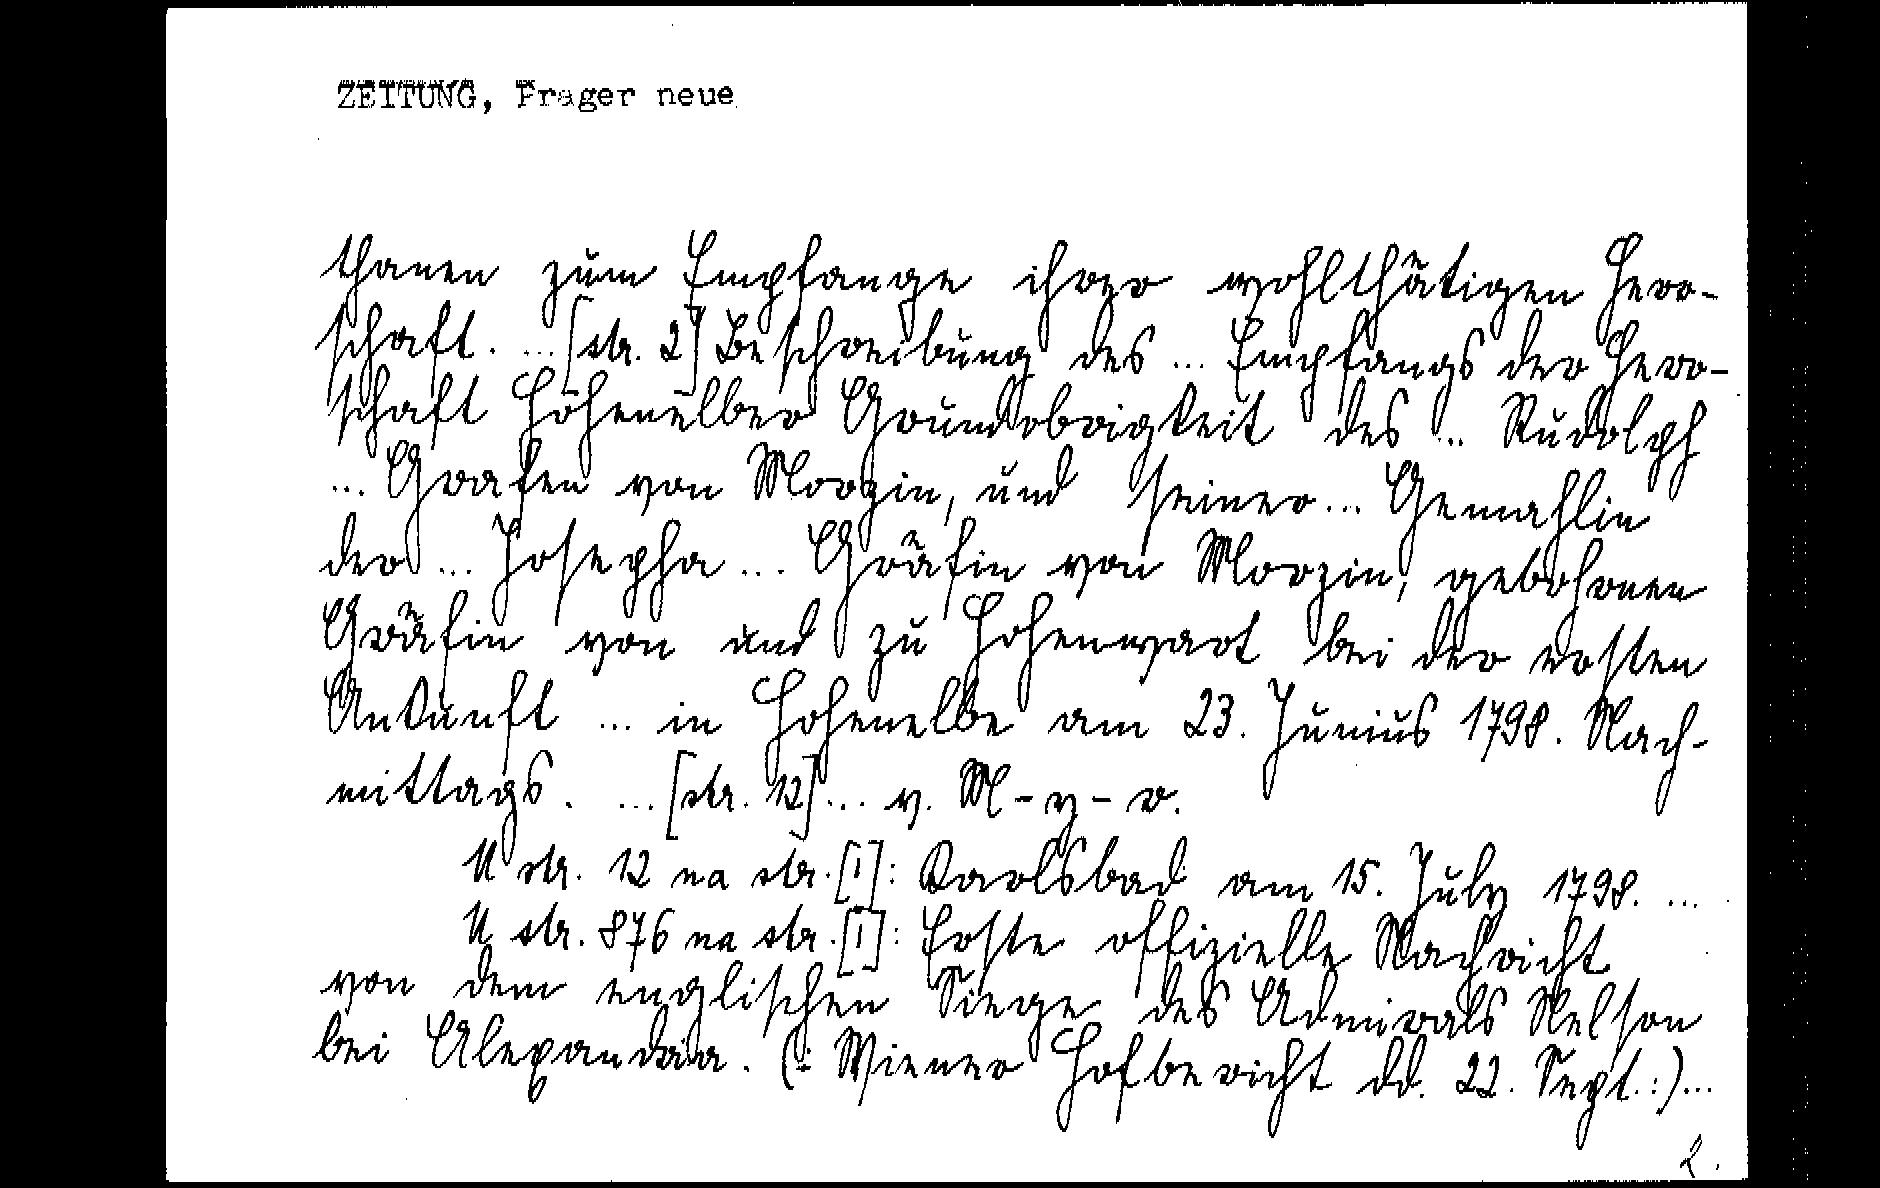 ZEITUNG, Prager neue
thanen zum Empfange ihrer wohlthätigen Herr-
schaft. ... [str. 2] Beschreibung des ... Empfangs der Herr-
schaft Hohenelber Grundobrigkeit des ... Rudolph
... Grafen von Morzin, und seiner ... Gemahlin
der ... Josepha ... Gräfin von Morzin, gebohrnen
Gräfin von und zu Hohenwart bei der ersten
Ankunft ... in Hohenelbe am 23. Junius 1798. Nach-
mittags. ... [str. 12] ... v. M-y-r.
U str. 12 na str. [1]: Karlsbad am 15. July 1798. ...
U str. 876 na str. [1]: Erste offizielle Nachricht
von dem englischen Siege des Admirals Nelson
bei Alexandria. (: Wiener Hofbericht dd. 22. Sept. :) ...
2.